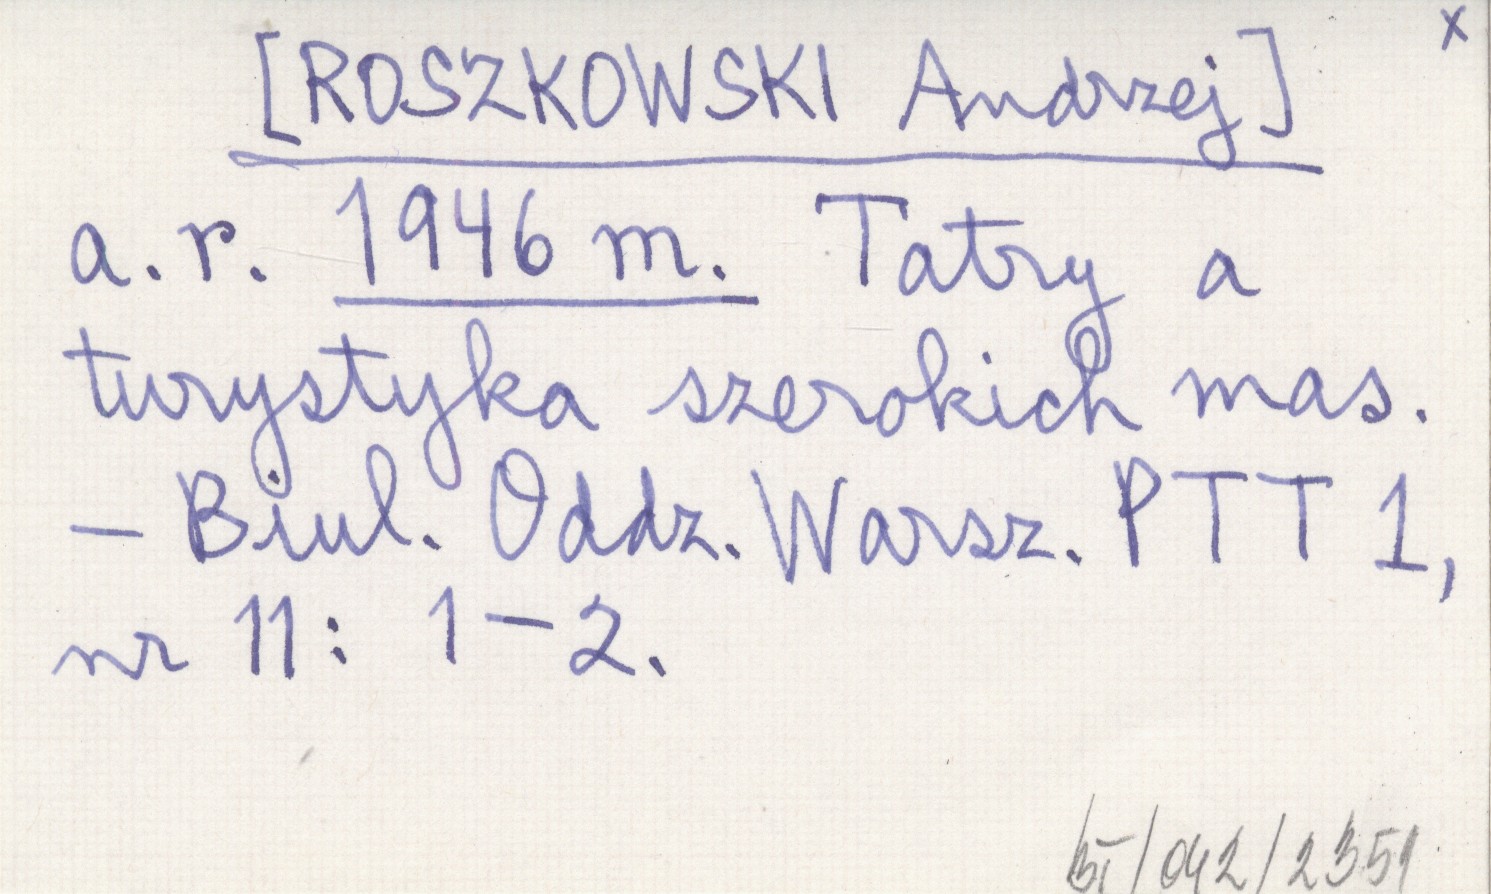 x
[ROSZKOWSKI Andrzej]
a.r. 1946 m. Tatry a
turystyka szerokich mas.
– Biul. Oddz. Warsz. PTT 1,
nr 11: 1–2.
/042/2351